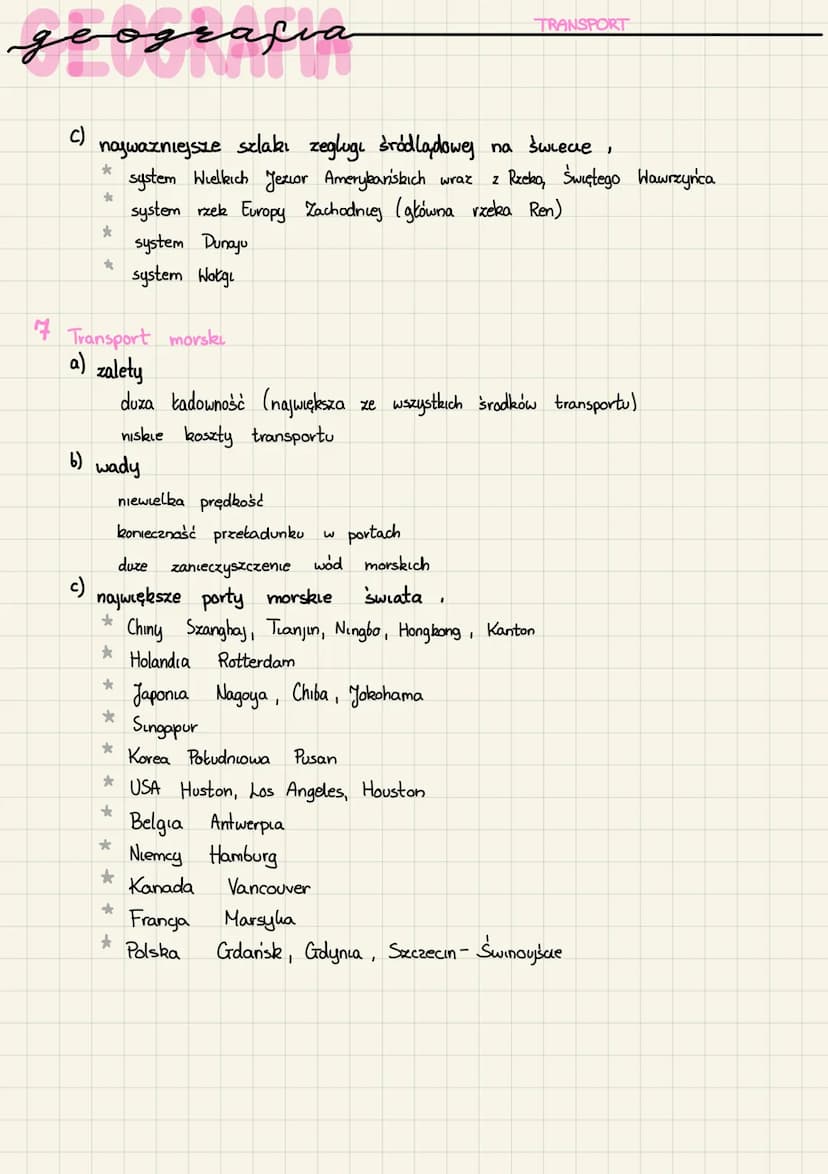 GEOGRAFIA
geografia
TRANSPORT
c) najważniejsze szlaki żeglugi śródlądowej na świecie,
* system Wielkich Jezior Amerykańskich wraz z Rzeką, Świętego Wawrzyńca
* system rzek Europy Zachodniej (główna rzeka Ren)
* system Dunaju
* system Wołgi
7 Transport morski
a) zalety
duża ładowność (największa ze wszystkich środków transportu)
niskie koszty transportu
b) wady
niewielka prędkość
konieczność przeładunku w portach
duże zanieczyszczenie wód morskich
c) największe porty morskie świata,
* Chiny Szanghaj, Tianjin, Ningbo, Hongkong, Kanton
* Holandia Rotterdam
* Japonia Nagoya, Chiba, Jokohama
* Singapur
* Korea Południowa Pusan
* USA Huston, Los Angeles, Houston
* Belgia Antwerpia
* Niemcy Hamburg
* Kanada Vancouver
* Francja Marsylia
* Polska Gdańsk, Gdynia, Szczecin - Świnoujście